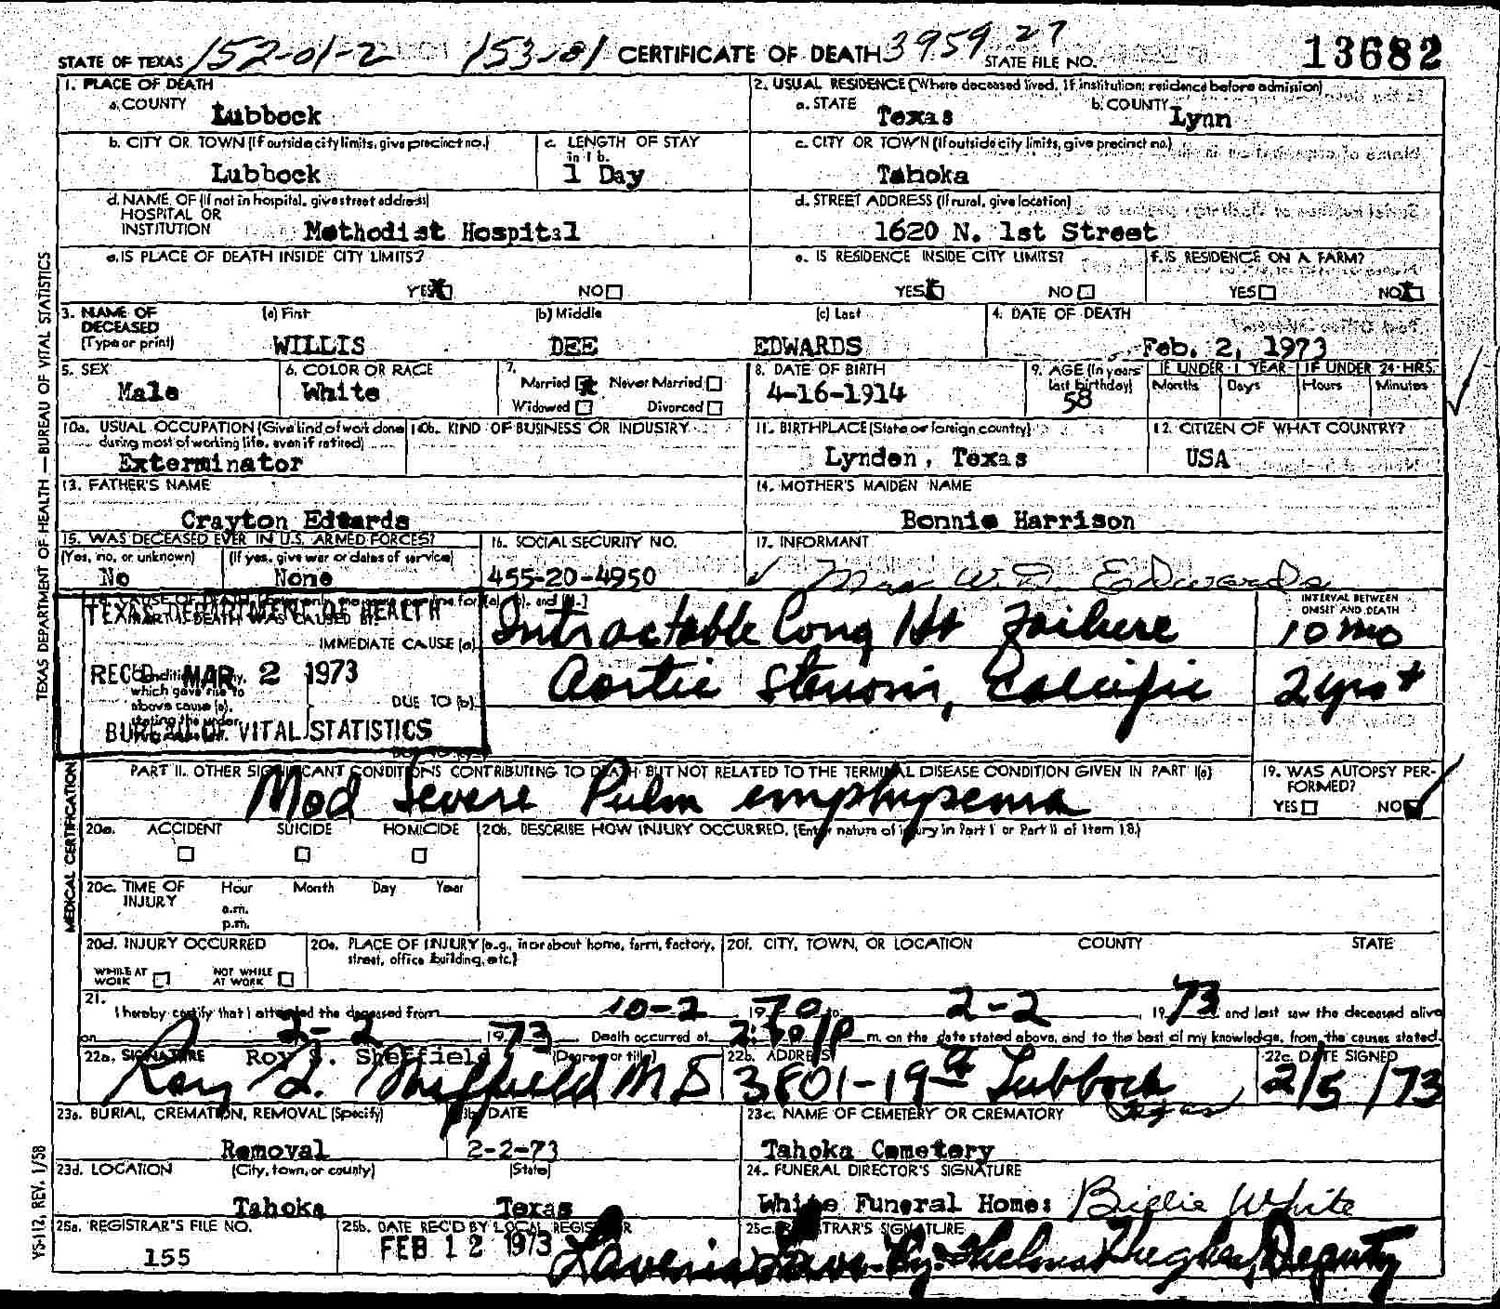 STATE OF TEXAS 152-01-2 153-81 CERTIFICATE OF DEATH 3959 27 STATE FILE NO. 13682
1. PLACE OF DEATH
a. COUNTY
Lubbock
2. USUAL RESIDENCE (Where deceased lived. If institution: residence before admission)
a. STATE Texas b. COUNTY Lynn
b. CITY OR TOWN (If outside city limits, give precinct no.)
Lubbock
c. LENGTH OF STAY in 1 b.
1 Day
c. CITY OR TOWN (If outside city limits, give precinct no.)
Tahoka
d. NAME OF (If not in hospital, give street address)
HOSPITAL OR
INSTITUTION Methodist Hospital
d. STREET ADDRESS (If rural, give location)
1620 N. 1st Street
e. IS PLACE OF DEATH INSIDE CITY LIMITS?
YES NO
e. IS RESIDENCE INSIDE CITY LIMITS?
YES NO
f. IS RESIDENCE ON A FARM?
YES NO
3. NAME OF DECEASED (Type or print)
(a) First (b) Middle (c) Last
WILLIS DEE EDWARDS
4. DATE OF DEATH
Feb. 2, 1973
5. SEX
Male
6. COLOR OR RACE
White
7.
Married Never Married
Widowed Divorced
8. DATE OF BIRTH
4-16-1914
9. AGE (In years last birthday)
58
IF UNDER 1 YEAR IF UNDER 24 HRS.
Months Days Hours Minutes
10a. USUAL OCCUPATION (Give kind of work done during most of working life, even if retired)
Exterminator
10b. KIND OF BUSINESS OR INDUSTRY
11. BIRTHPLACE (State or foreign country)
Lynden, Texas
12. CITIZEN OF WHAT COUNTRY?
USA
13. FATHER'S NAME
Crayton Edwards
14. MOTHER'S MAIDEN NAME
Bonnie Harrison
15. WAS DECEASED EVER IN U.S. ARMED FORCES?
(Yes, no, or unknown) (If yes, give war or dates of service)
No None
16. SOCIAL SECURITY NO.
455-20-4950
17. INFORMANT
Mrs W. D. Edwards
TEXAS DEPARTMENT OF HEALTH
REC'D MAR 2 1973
BUREAU OF VITAL STATISTICS
IMMEDIATE CAUSE (a) Intractable Cong Ht Failure
INTERVAL BETWEEN ONSET AND DEATH
10 mo
which gave rise to
above cause (a),
DUE TO (b) Aortic Stenosis, Calcific 2 yrs +
PART II. OTHER SIGNIFICANT CONDITIONS CONTRIBUTING TO DEATH BUT NOT RELATED TO THE TERMINAL DISEASE CONDITION GIVEN IN PART I(a)
Mod Severe Pulm emphysema
19. WAS AUTOPSY PERFORMED?
YES NO
20a. ACCIDENT SUICIDE HOMICIDE
20b. DESCRIBE HOW INJURY OCCURRED. (Enter nature of injury in Part I or Part II of Item 18.)
20c. TIME OF INJURY Hour Month Day Year
a.m.
p.m.
20d. INJURY OCCURRED
WHILE AT WORK NOT WHILE AT WORK
20e. PLACE OF INJURY (e.g., in or about home, farm, factory, street, office building, etc.)
20f. CITY, TOWN, OR LOCATION COUNTY STATE
21.
I hereby certify that I attended the deceased from 10-2 1970 to 2-2, 1973 and last saw the deceased alive
on 2-2 1973. Death occurred at m. on the date stated above, and to the best of my knowledge, from the causes stated.
22a. SIGNATURE Roy S. Sheffield (Degree or title)
Roy S. Sheffield MD
22b. ADDRESS
3801-19th Lubbock Texas
22c. DATE SIGNED
2/5/73
23a. BURIAL, CREMATION, REMOVAL (Specify)
Removal
23b. DATE
2-2-73
23c. NAME OF CEMETERY OR CREMATORY
Tahoka Cemetery
23d. LOCATION (City, town, or county) (State)
Tahoka Texas
24. FUNERAL DIRECTOR'S SIGNATURE
White Funeral Home: Billie White
25a. REGISTRAR'S FILE NO.
155
25b. DATE REC'D BY LOCAL REGISTRAR
FEB 12 1973
25c. REGISTRAR'S SIGNATURE
Lavenia Lowe By: Thelma Hughes, Deputy
TEXAS DEPARTMENT OF HEALTH — BUREAU OF VITAL STATISTICS
MEDICAL CERTIFICATION
VS-112, REV. 1/58